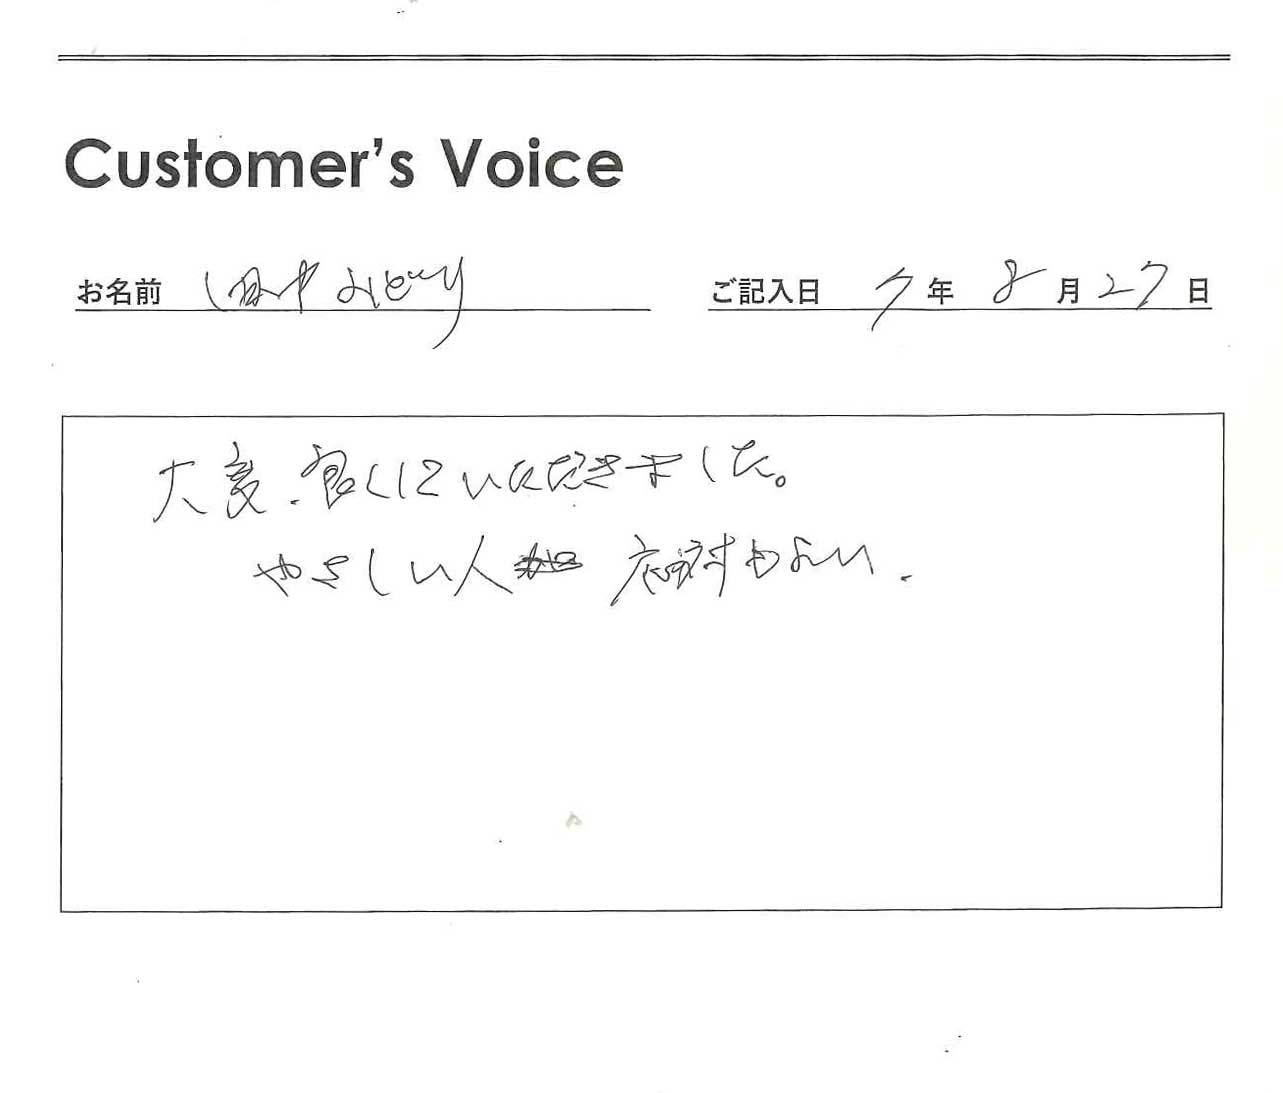 Customer's Voice
お名前 田中みどり ご記入日 7年 8月27日
大変.良くしていただきました。
やさしい人 応対もよい.